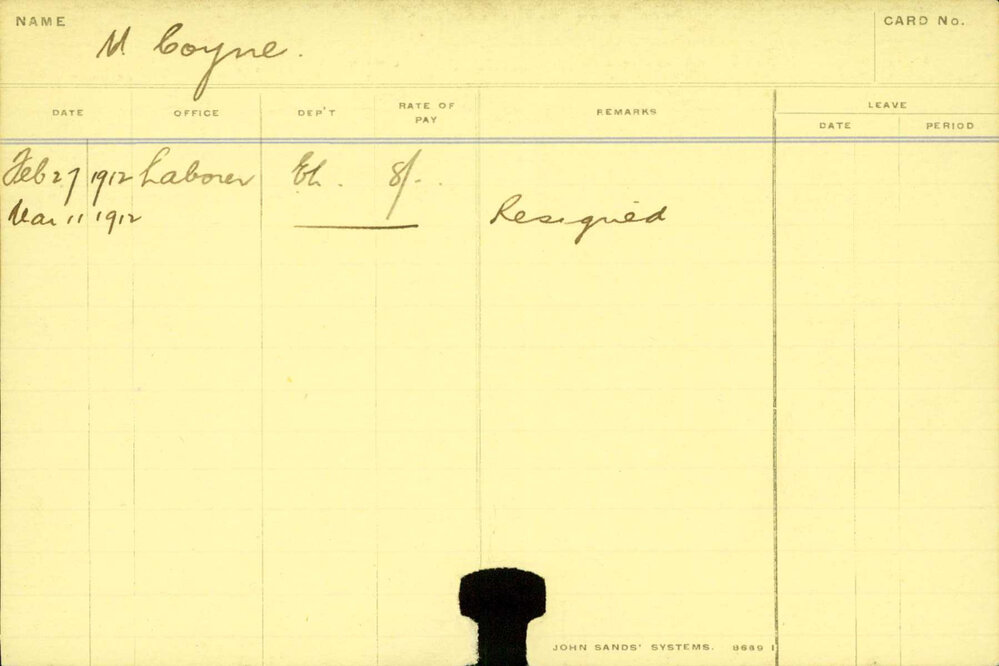 NAME M Coyne. CARD No.
DATE OFFICE DEP'T RATE OF PAY REMARKS LEAVE
DATE PERIOD
Feb 27 1912 Laborer 8/-
Mar 11 1912 Resigned
JOHN SANDS' SYSTEMS. 8669 1